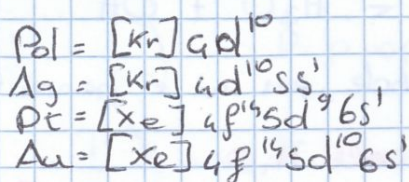 Pd = [Kr] 4d¹⁰
Ag = [Kr] 4d¹⁰5s¹
Pt = [Xe] 4f¹⁴5d⁹6s¹
Au = [Xe] 4f¹⁴5d¹⁰6s¹